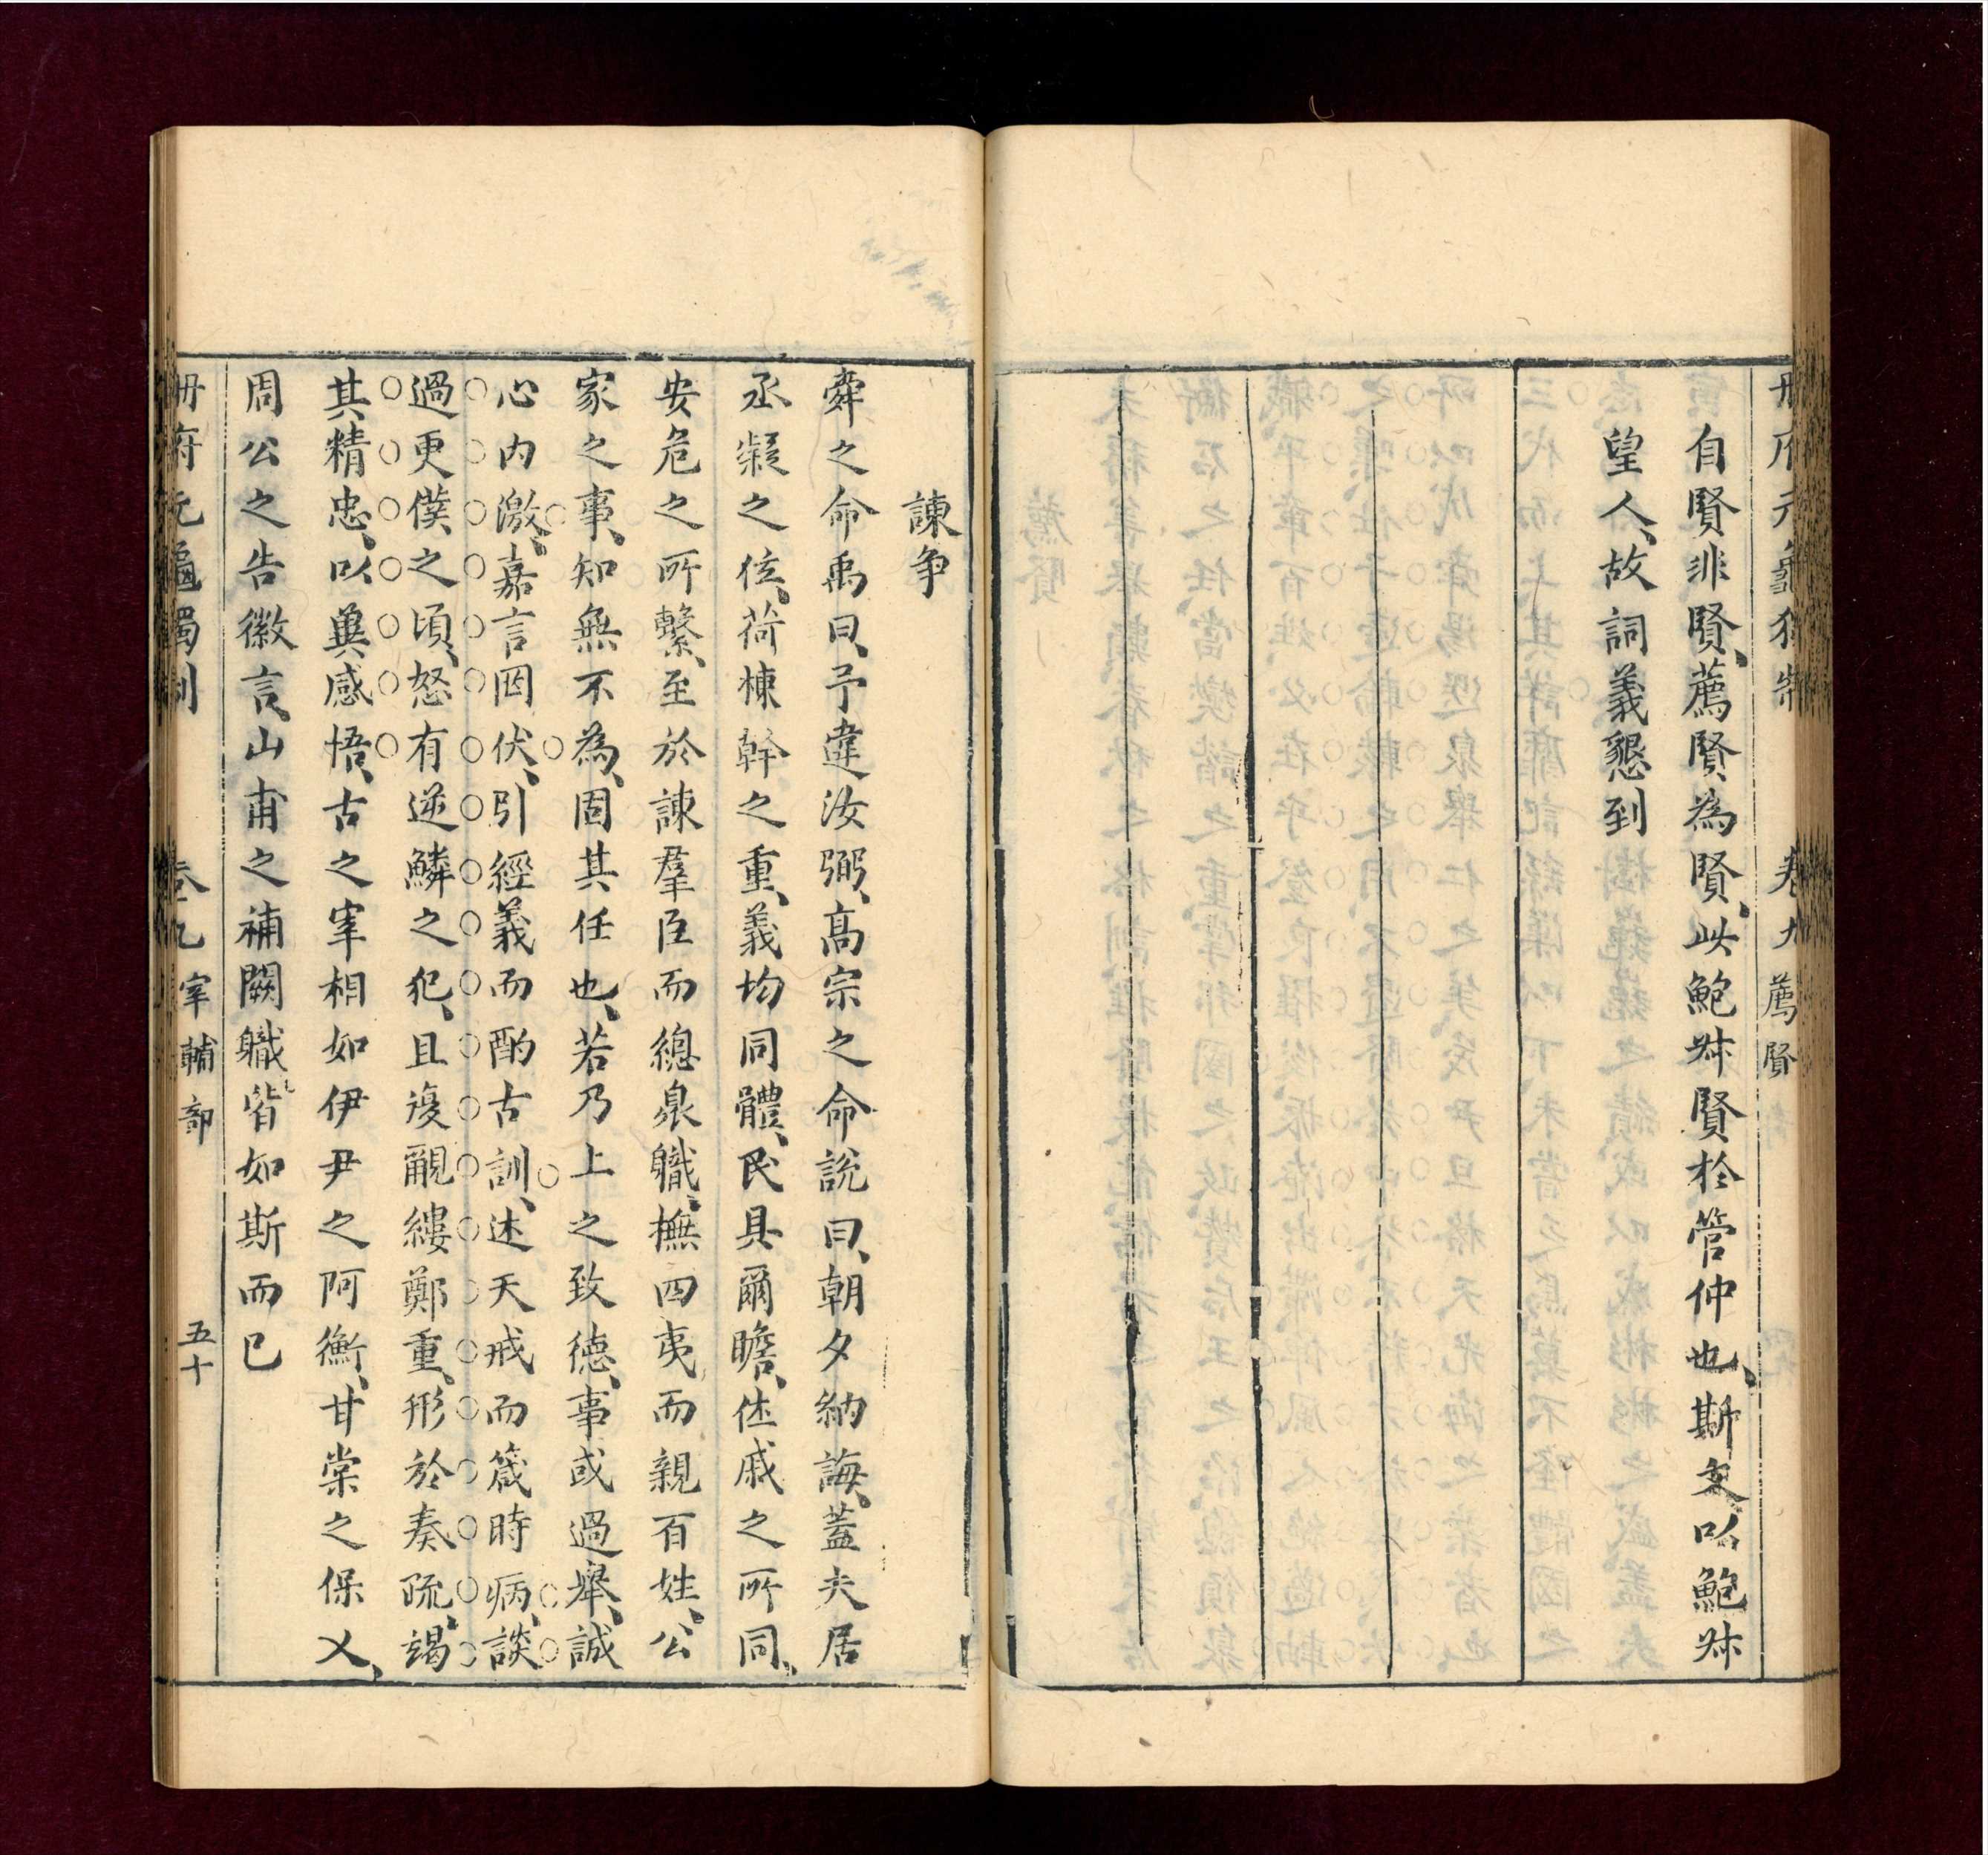 册府元龜獨制 卷九 薦賢
自賢非賢、薦賢為賢、此鮑叔賢於管仲也、斯文以鮑叔
望人、故詞義懇到
諫爭
舜之命禹曰、予違汝弼、高宗之命說曰、朝夕納誨、蓋夫居
丞凝之位、荷棟幹之重、義均同體、民具爾瞻、休戚之所同、
安危之所繫、至於諫羣臣而總衆職、撫四夷而親百姓、公
家之事、知無不為、固其任也、若乃上之致德、事或過舉、誠
心内激、嘉言罔伏、引經義而酌古訓、述天戒而箴時病、談
過更僕之頃、怒有逆鱗之犯、且復覼縷鄭重、形於奏疏、竭
其精忠、以冀感悟、古之宰相如伊尹之阿衡、甘棠之保乂、
周公之告徽言、山甫之補闕職皆如斯而已
册府元龜獨制 卷九 宰輔部 五十